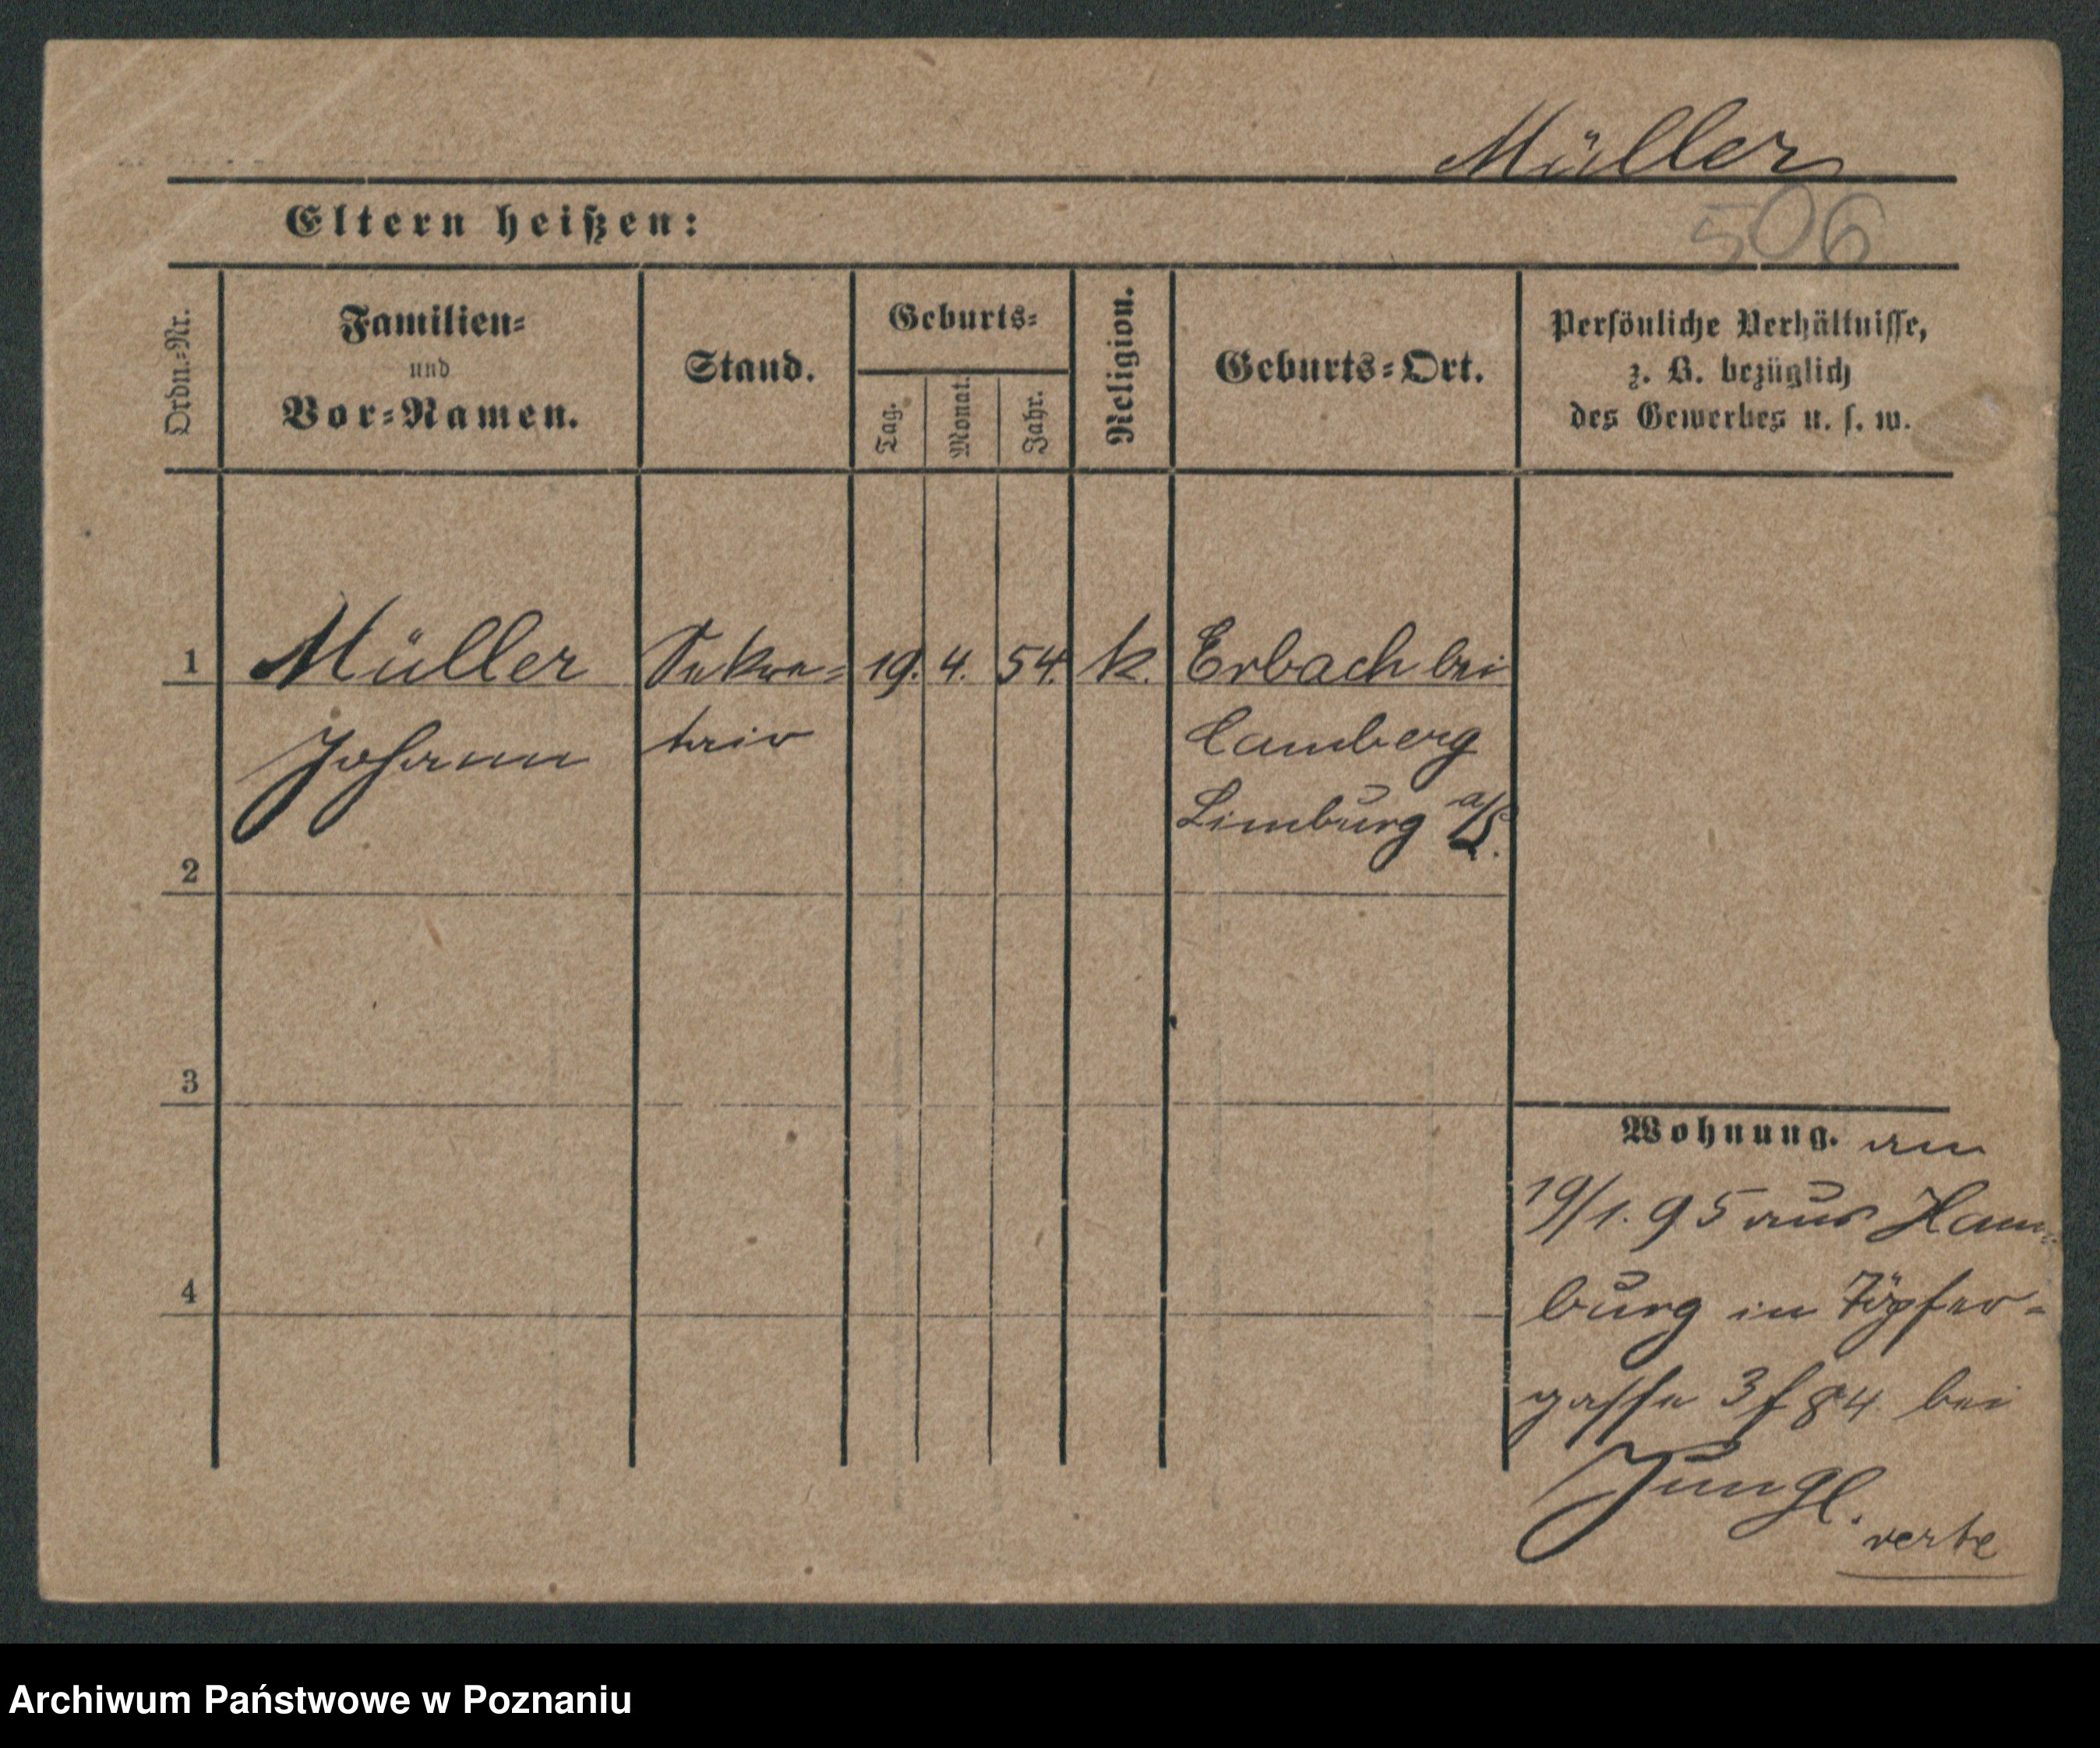 Müller
506
Eltern heißen:
Ordn.-Nr.
Familien-
und
Vor-Namen.
Stand.
Geburts-
Tag.
Monat.
Jahr.
Religion.
Geburts-Ort.
Persönliche Verhältnisse,
z. B. bezüglich
des Gewerbes u. s. w.
1 Müller Sekre= 19. 4. 54. k. Erbach bei
Johann tair Camberg
Limburg a/L.
2
3
4
Wohnung. an
19/1. 95 aus Ham=
burg in Töpfer=
gasse 3 f 84 bei
Jungl.
verte
Archiwum Państwowe w Poznaniu